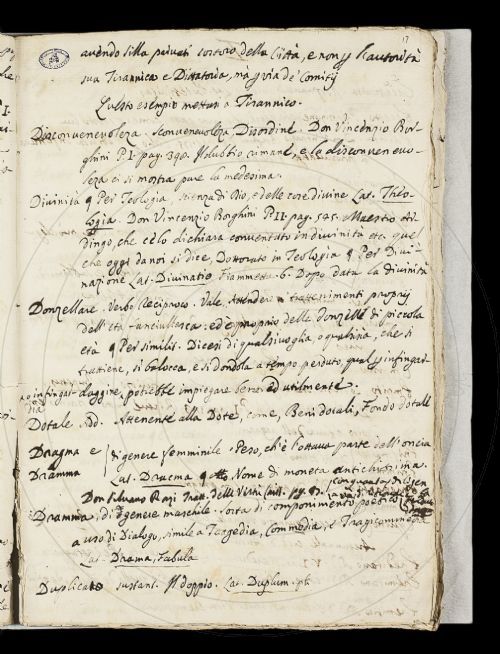 avendo Silla privati costoro della Città, e non p l'autorità
sua Tirannica e Dittatoria, mà p via de' Comitij
Questo esempio mettasi a Tirannico.
Disconvenevolezza. Sconvenevolezza Disordine. Don Vincenzio Bor-
ghini P.I. pag. 390. Il dubbio rimane, e la disconvenevo-
lezza ci si mostra pure la medesima.
Divinità ¶ Per Teologia, scienza di Dio, e delle cose divine Lat. Theo-
logia. Don Vincenzio Borghini P.II. pag. 545. Maestro Al-
dingo, che ce lo dichiara conventato in divinità etc. quel
che oggi da noi si dice, Dottorato in Teologia ¶ Per Divi-
nazione Lat. Divinatio Fiammetta. 6. Dopo data la divinità
Donzellare. Verbo Reciproco. Vale Attendere a trattenimenti proprij
dell'età fanciullesca: ed è proprio delle donzelle di piccola
età ¶ Per similit. Dicesi di qualsivoglia o qualsisia, che si
trattiene, si balocca, e si dondola a tempo perduto, qual p infingar-
o infingar- daggire, potrebbe impiegare bene ed utilmente.
dia
Dotale. Add. Attenente alla Dote, come, Beni dotali, Fondo dotale
Dragma e
Dramma
di genere femminile. Peso, ch'è l'ottava parte dell'oncia
Lat. Dracma ¶ Nome di moneta antichissima.
Don Silvano Razi Tratt. delle Virtù
Dramma, di genere maschile. sorta di componimento poetico
a uso di Dialogo, simile a Tragedia, Commedia, e Tragicommedia
Lat. Drama, Fabula
Duplicato sustant. Il doppio. Lat. Duplum.